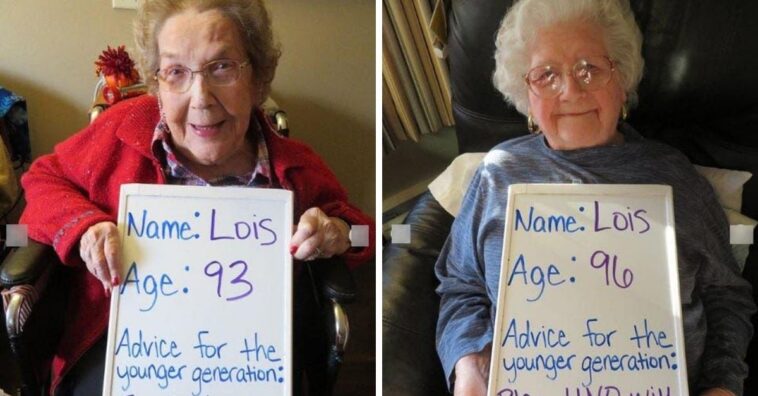 Name: Lois
Age: 93
Advice for the
younger generation:
Name: Lois
Age: 96
Advice for the
younger generation: